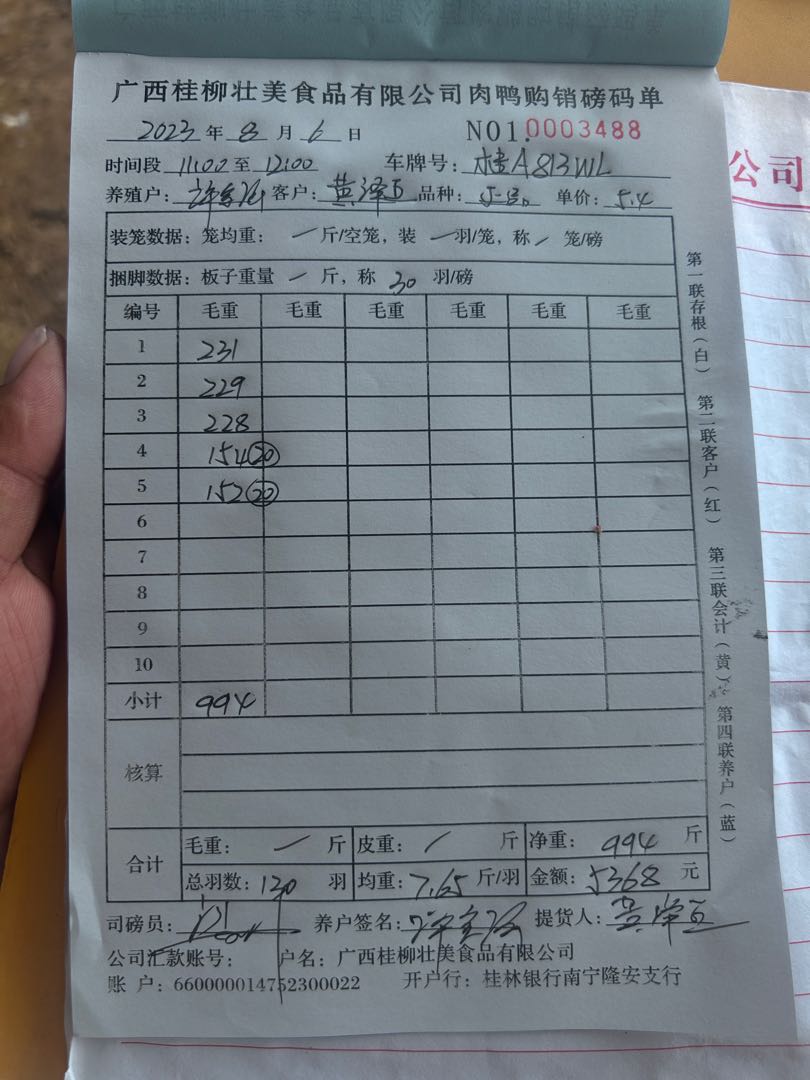 广西桂柳壮美食品有限公司肉鸭购销磅码单
2023 年 8 月 6 日 NO1.0003488
时间段 11:00 至 12:00 车牌号: 桂A813WL
养殖户: 客户: 黄泽 品种: 单价: 5.4
装笼数据: 笼均重: 一 斤/空笼, 装 一 羽/笼, 称 / 笼/磅
捆脚数据: 板子重量 一 斤, 称 30 羽/磅
编号 毛重 毛重 毛重 毛重 毛重 毛重
1 231
2 229
3 228
4 154 20
5 152 20
6
7
8
9
10
小计 994
核算
合计 毛重: 一 斤 皮重: / 斤 净重: 994 斤
总羽数: 130 羽 均重: 7.65 斤/羽 金额: 5368 元
司磅员: 养户签名: 提货人:
公司汇款账号: 户名: 广西桂柳壮美食品有限公司
账 户: 660000014752300022 开户行: 桂林银行南宁隆安支行
第一联存根(白) 第二联客户(红) 第三联会计(黄) 第四联养户(蓝)
公司